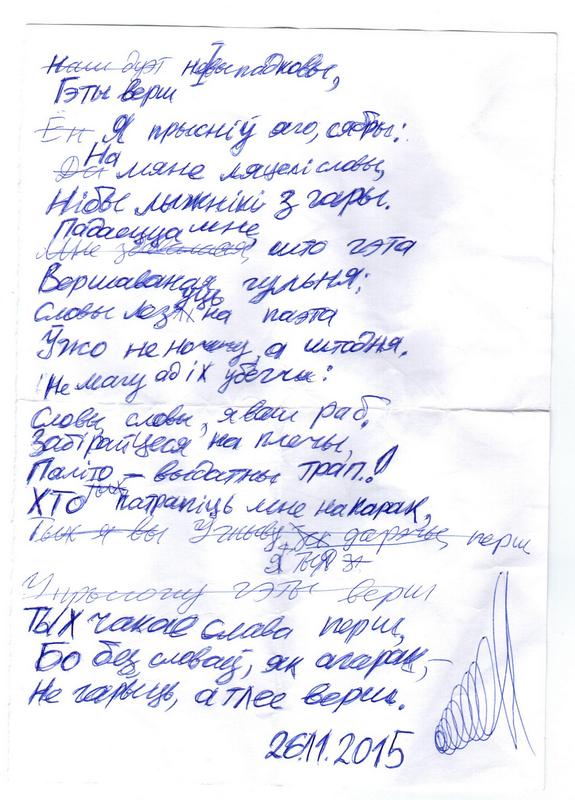 Наш дуэт невыпадковы,
Гэты верш
Ён Я прысніў яго, сябры:
На
мяне ляцелі словы,
Нібы лыжнікі з гары.
Падаецца мне
Мне здавалася, што гэта
Вершаваная гульня;
Словы лезуць на паэта
Ўжо не ноччу, а штодня.
Не магу ад іх убегчы:
Словы, словы, я ваш раб.
Забірайцеся на плечы,
Паліто – выдатны трап!
Хто патрапіць мне на карак,
Тых я вы дарэчы, перш
Я тыя
гэты верш
Тых чакае слава перш,
Бо без словаў, як агарак, –
Не гарыць, а тлее верш.
26.11.2015